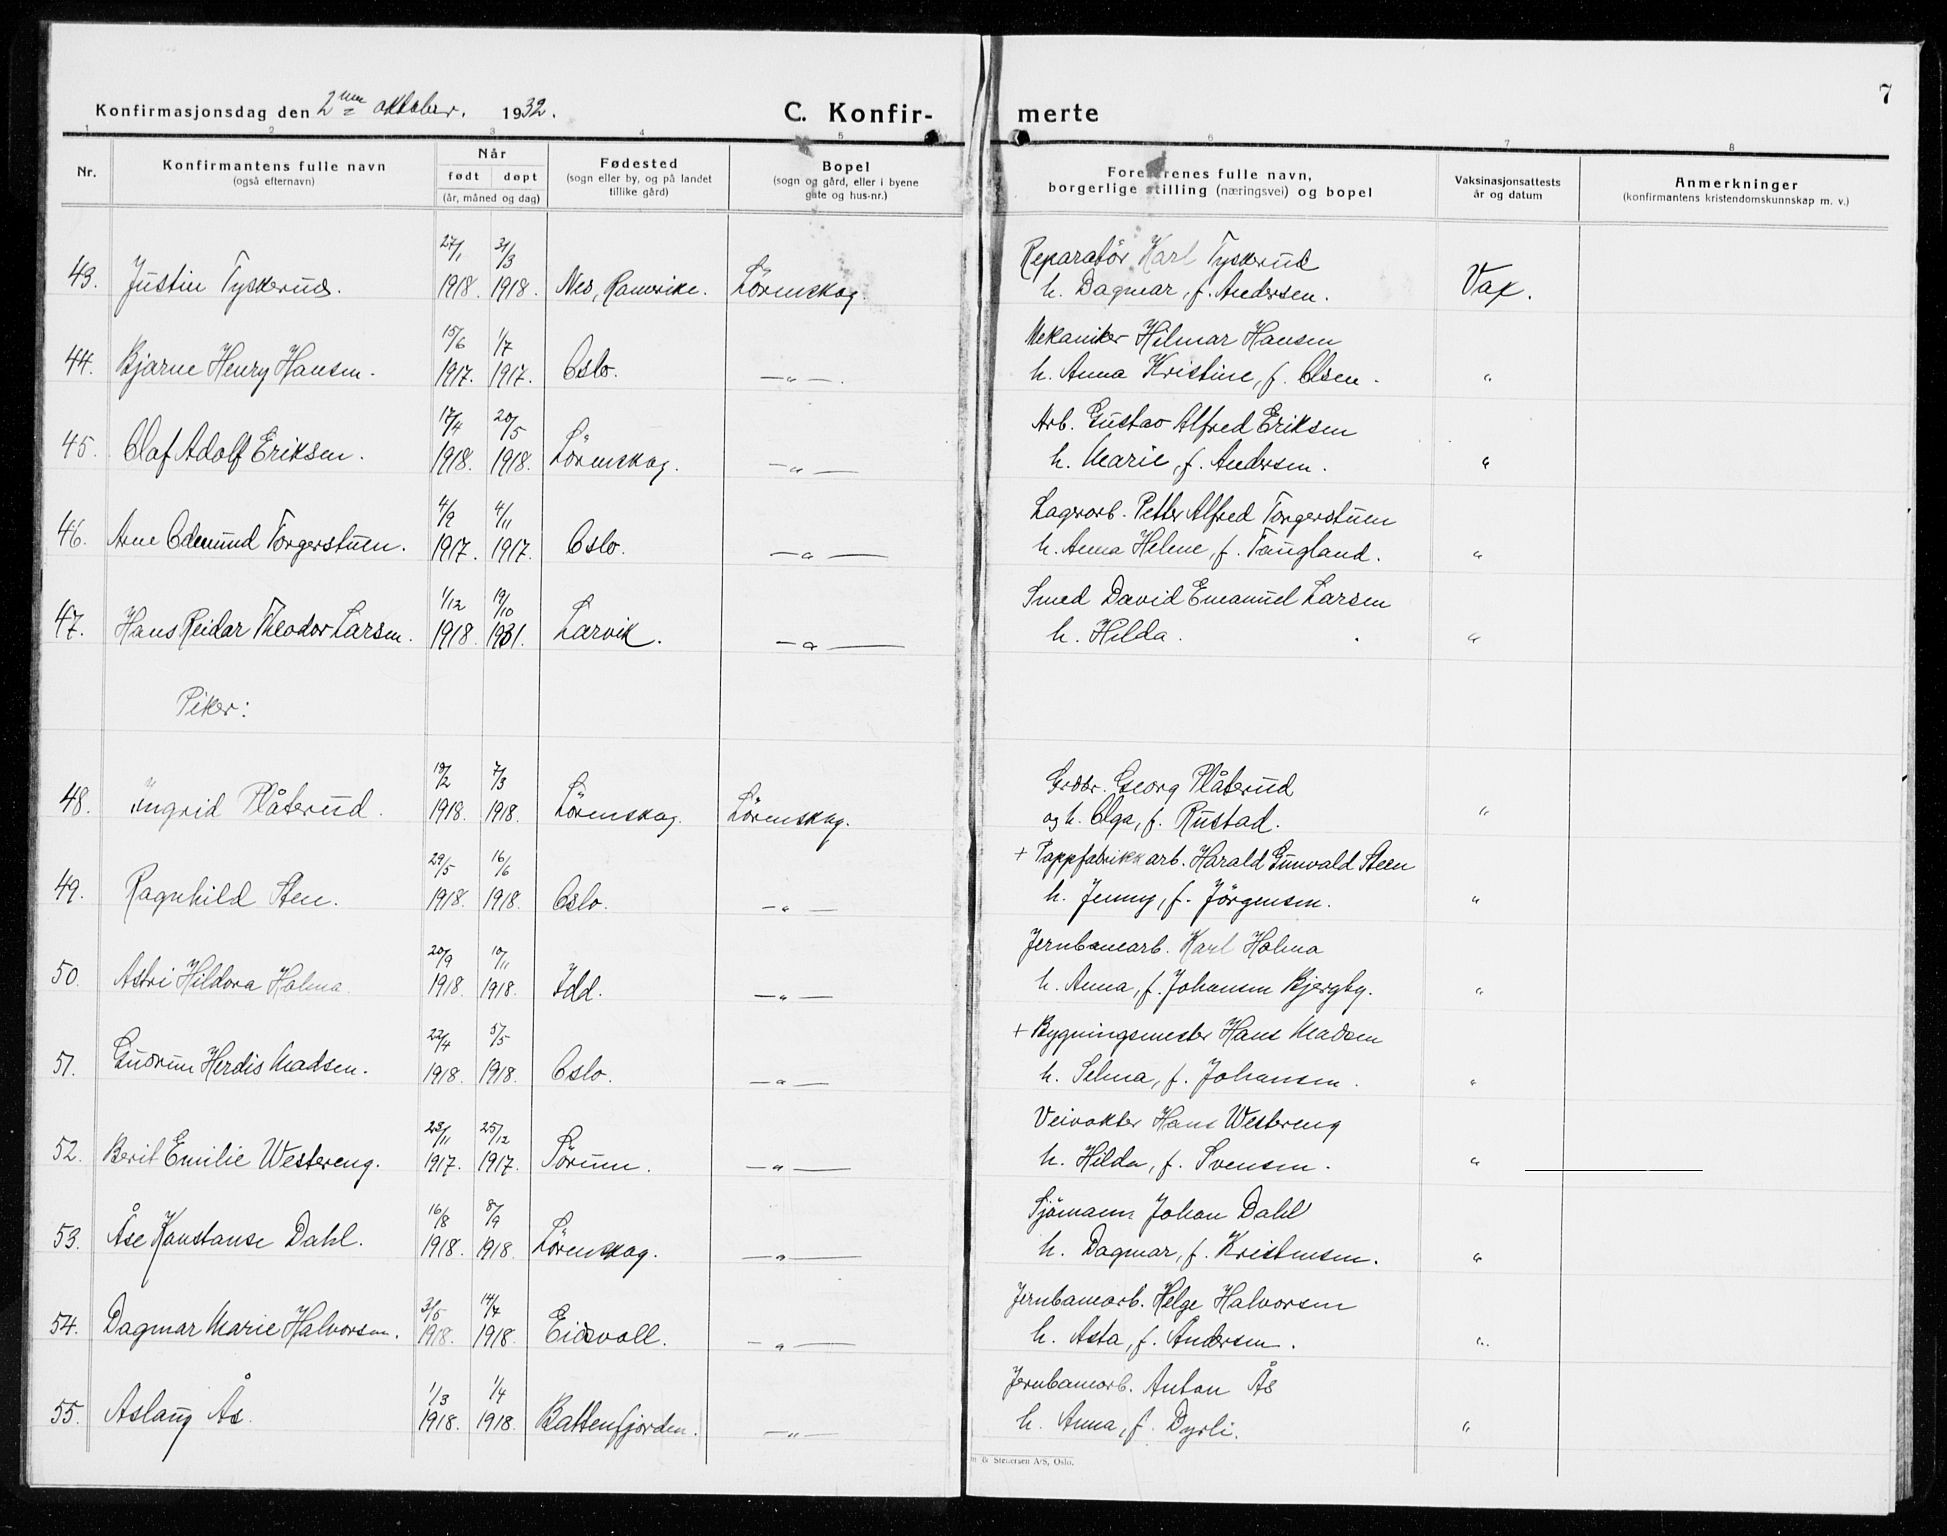 7
Konfirmasjonsdag den 2nen oktober. 1932. C. Konfir- merte
1 2 3 4 5 6 7 8
Nr. Konfirmantens fulle navn Når Fødested Bopel Foreldrenes fulle navn, Vaksinasjonsattests Anmerkninger
(også efternavn) født døpt (sogn eller by, og på landet (sogn og gård, eller i byene borgerlige stilling (næringsvei) og bopel år og datum (konfirmantens kristendomskunnskap m. v.)
(år, måned og dag) tillike gård) gate og hus-nr.)
27/1 31/3 Reparatör Karl Tyskerud
43. Justin Tyskerud. 1918. 1918. Nes, Romerike. Lörenskog. h. Dagmar, f. Andersen. Vax.
15/6 1/7 Mekaniker Hilmar Hansen
44. Bjarne Henry Hansen. 1917. 1917. Oslo. —„—. h. Anna Kristine, f. Olsen. „
17/4 20/5 Arb. Gustav Alfred Eriksen
45. Olaf Adolf Eriksen. 1918. 1918. Lörenskog. —„— h. Marie, f. Andersen. „
4/9 4/11 Lagerarb. Petter Alfred Torgerstuen
46. Arne Odmund Torgerstuen. 1917. 1917. Oslo. —„— h. Anna Helene, f. Taugland. „
1/12 19/10 Smed David Emanuel Larsen
47. Hans Reidar Theodor Larsen. 1918. 1931. Larvik. —„— h. Hilda. „
Piker:
19/2 7/3 Grdbr. Georg Plåterud
48. Ingrid Plåterud. 1918. 1918. Lörenskog. Lörenskog. og h. Olga, f. Rustad. „
29/5 16/6 + Pappfabrikkarb. Harald Gunvald Steen
49. Ragnhild Sten. 1918. 1918. Oslo. —„— h. Jenny, f. Jörgensen. „
20/9 10/11 Jernbanearb. Karl Holma
50. Astri Hildora Holma. 1918. 1918. Idd. —„— h. Anna, f. Johansen Bjergby. „
22/4 5/5 + Bygningsmester Hans Madsen
51. Gudrun Herdis Madsen. 1918. 1918. Oslo. —„— h. Selma, f. Johansen. „
23/11 25/12 Veivokter Hans Westereng
52. Berit Emilie Westereng. 1917. 1917. Sörum. —„— h. Hilda, f. Svensen. „
16/8 8/9 Sjömann Johan Dahl
53. Åse Konstanse Dahl. 1918. 1918. Lörenskog. —„— h. Dagmar, f. Kristensen. „
3/5 14/7 Jernbanearb. Helge Halvorsen
54. Dagmar Marie Halvorsen. 1918. 1918. Eidsvoll. —„— h. Asta, f. Andersen. „
1/3 1/4 Jernbanearb. Anton Ås
55. Aslaug Ås. 1918. 1918. Battenfjorden. —„— h. Anna, f. Dyrli. „
& Stenersen A/S, Oslo.